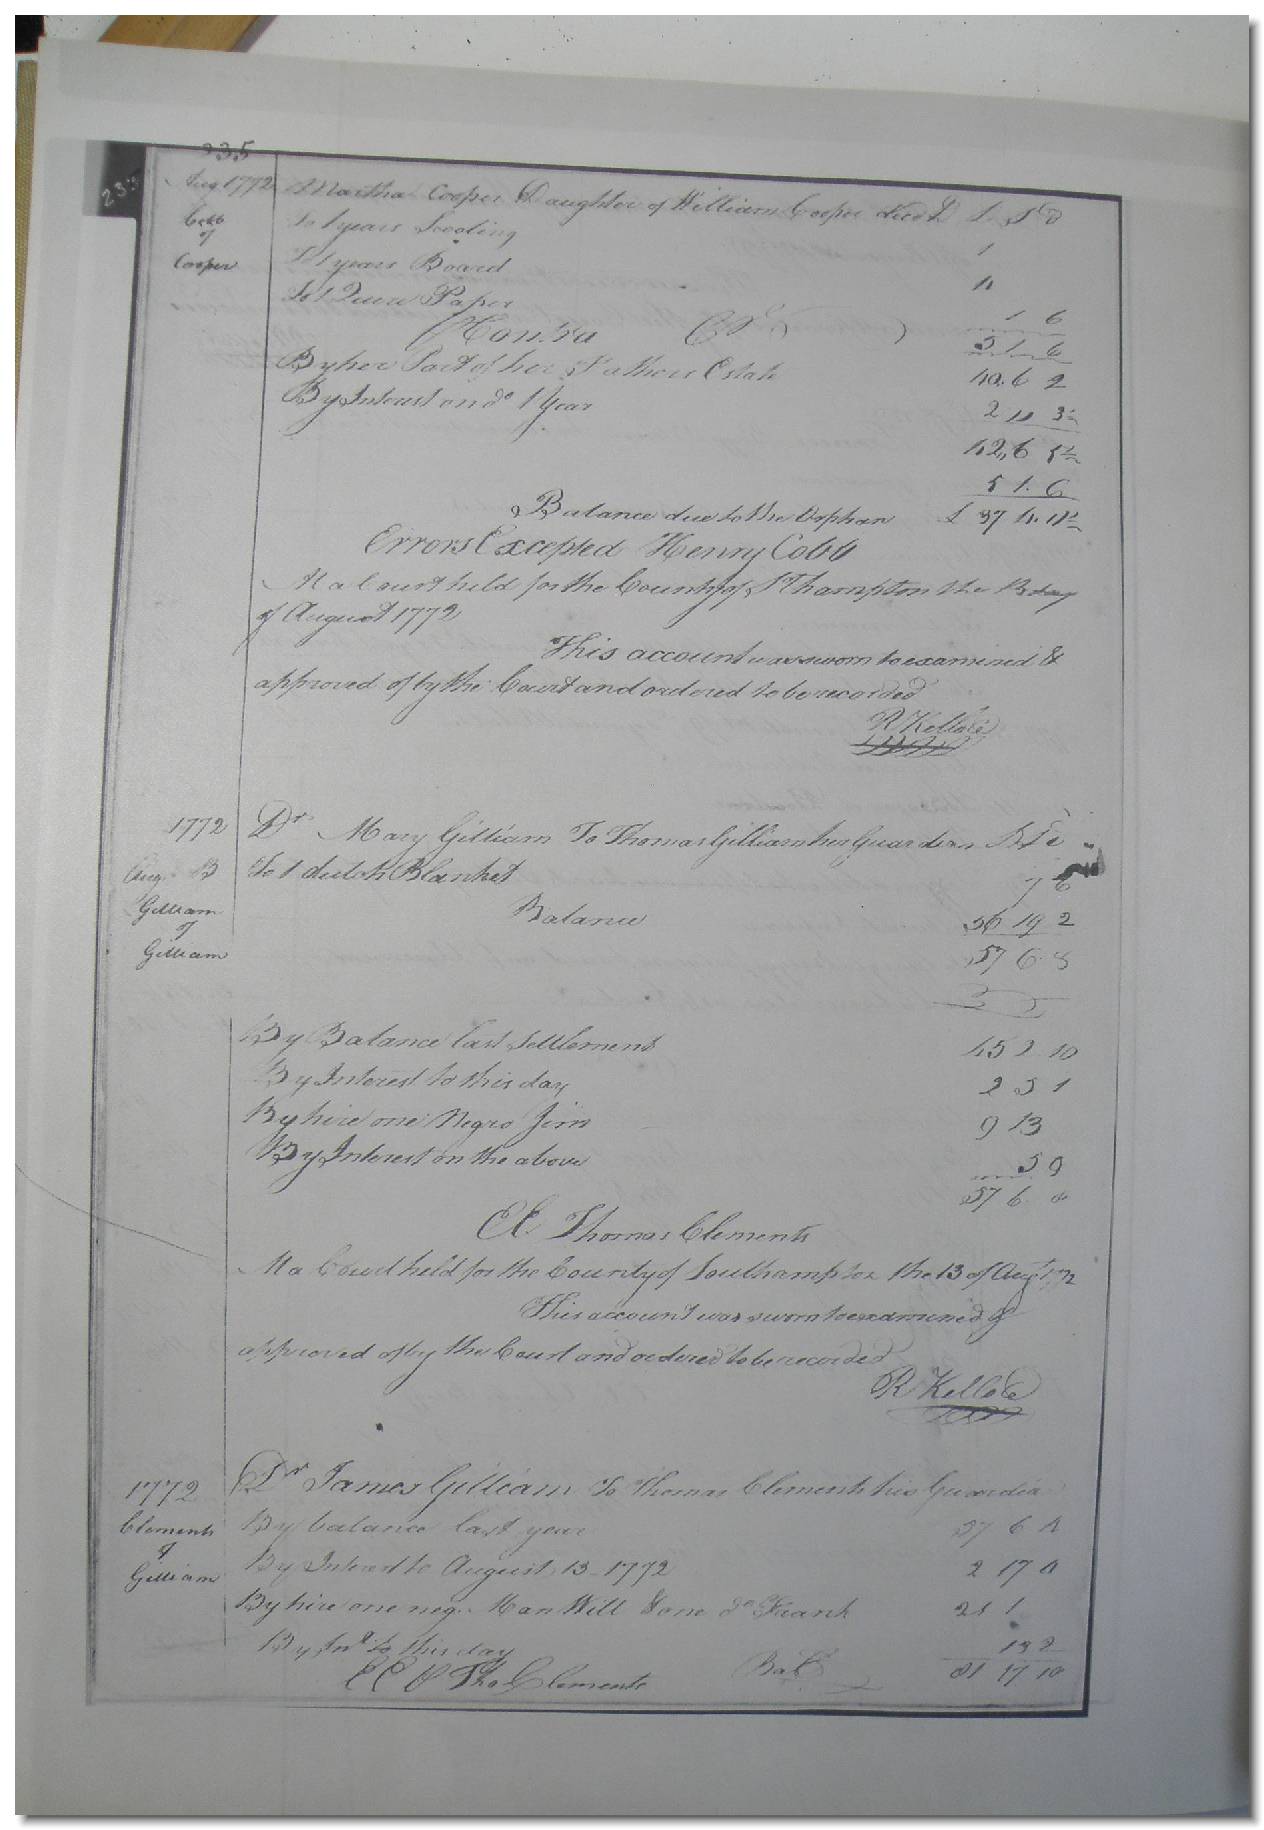 235
Aug 1772 Martha Cooper Daughter of William Cooper decd D L S D
Cobb
of
Cooper
To 1 years Scooling 1
To 1 years Board 4
To 1 Quire Paper 1 6
Contra Cr 5 1 6
By her Part of her Fathers Estate 40.6 2
By Interest on do 1 Year 2
42,6 5½
5 1. 6
Balance due to the Orphan £ 37 4. 11½
Errors Excepted Henry Cobb
At a Court held for the County of SThampton the 13 day
of August 1772
This account was sworn to examined &
approved of by the Court and ordered to be recorded
R Kello
1772 Dr Mary Gilliam To Thomas Gilliam her Guardian
Aug. 13 To 1 dutch Blanket 7 6
Gilliam
of
Gilliam
Balance 56 19 2
57 6 8
By Balance last Settlement 45 2 10
By Interest to this day 2 5 1
By hire one Negro Jim 9 13
By Interest on the above 5 9
57 6 8
EE Thomas Clements
At a Court held for the County of Southampton the 13 of Augt 1772
This account was sworn to examined &
approved of by the Court and ordered to be recorded
R Kello
1772 Dr James Gilliam To Thomas Clements his Guardian
Clements
of
Gilliam
By balance last year 57 6 4
By Interest to August 13 1772 2 17 4
By hire one neg. Man Will & one do Frank 21 1
By Int to this day
EE Tho Clements Bal 81 17 10